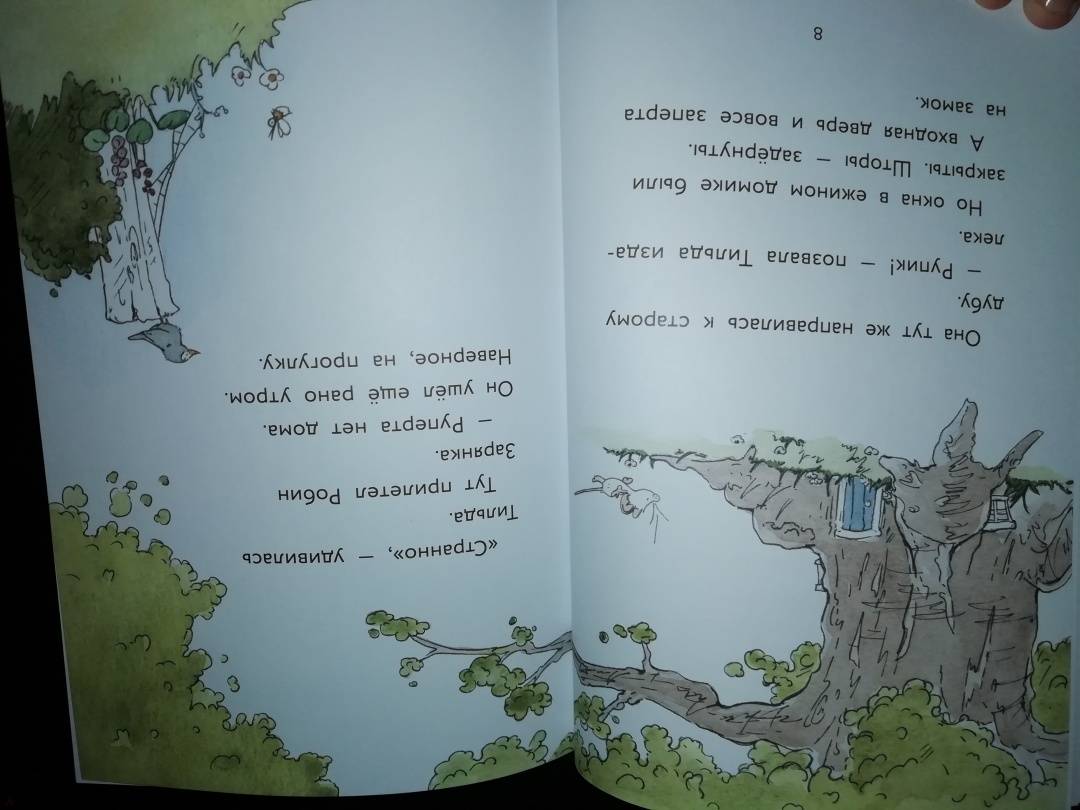 Она тут же направилась к старому
дубу.
— Рупик! — позвала Тильда изда-
лека.
Но окна в ежином домике были
закрыты. Шторы — задёрнуты.
А входная дверь и вовсе заперта
на замок.
8
«Странно», — удивилась
Тильда.
Тут прилетел Робин
Зарянка.
— Руперта нет дома.
Он ушёл ещё рано утром.
Наверное, на прогулку.